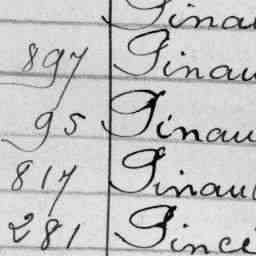 Pinau
897 Pinau
95 Pinau
817 Pinau
281 Pince